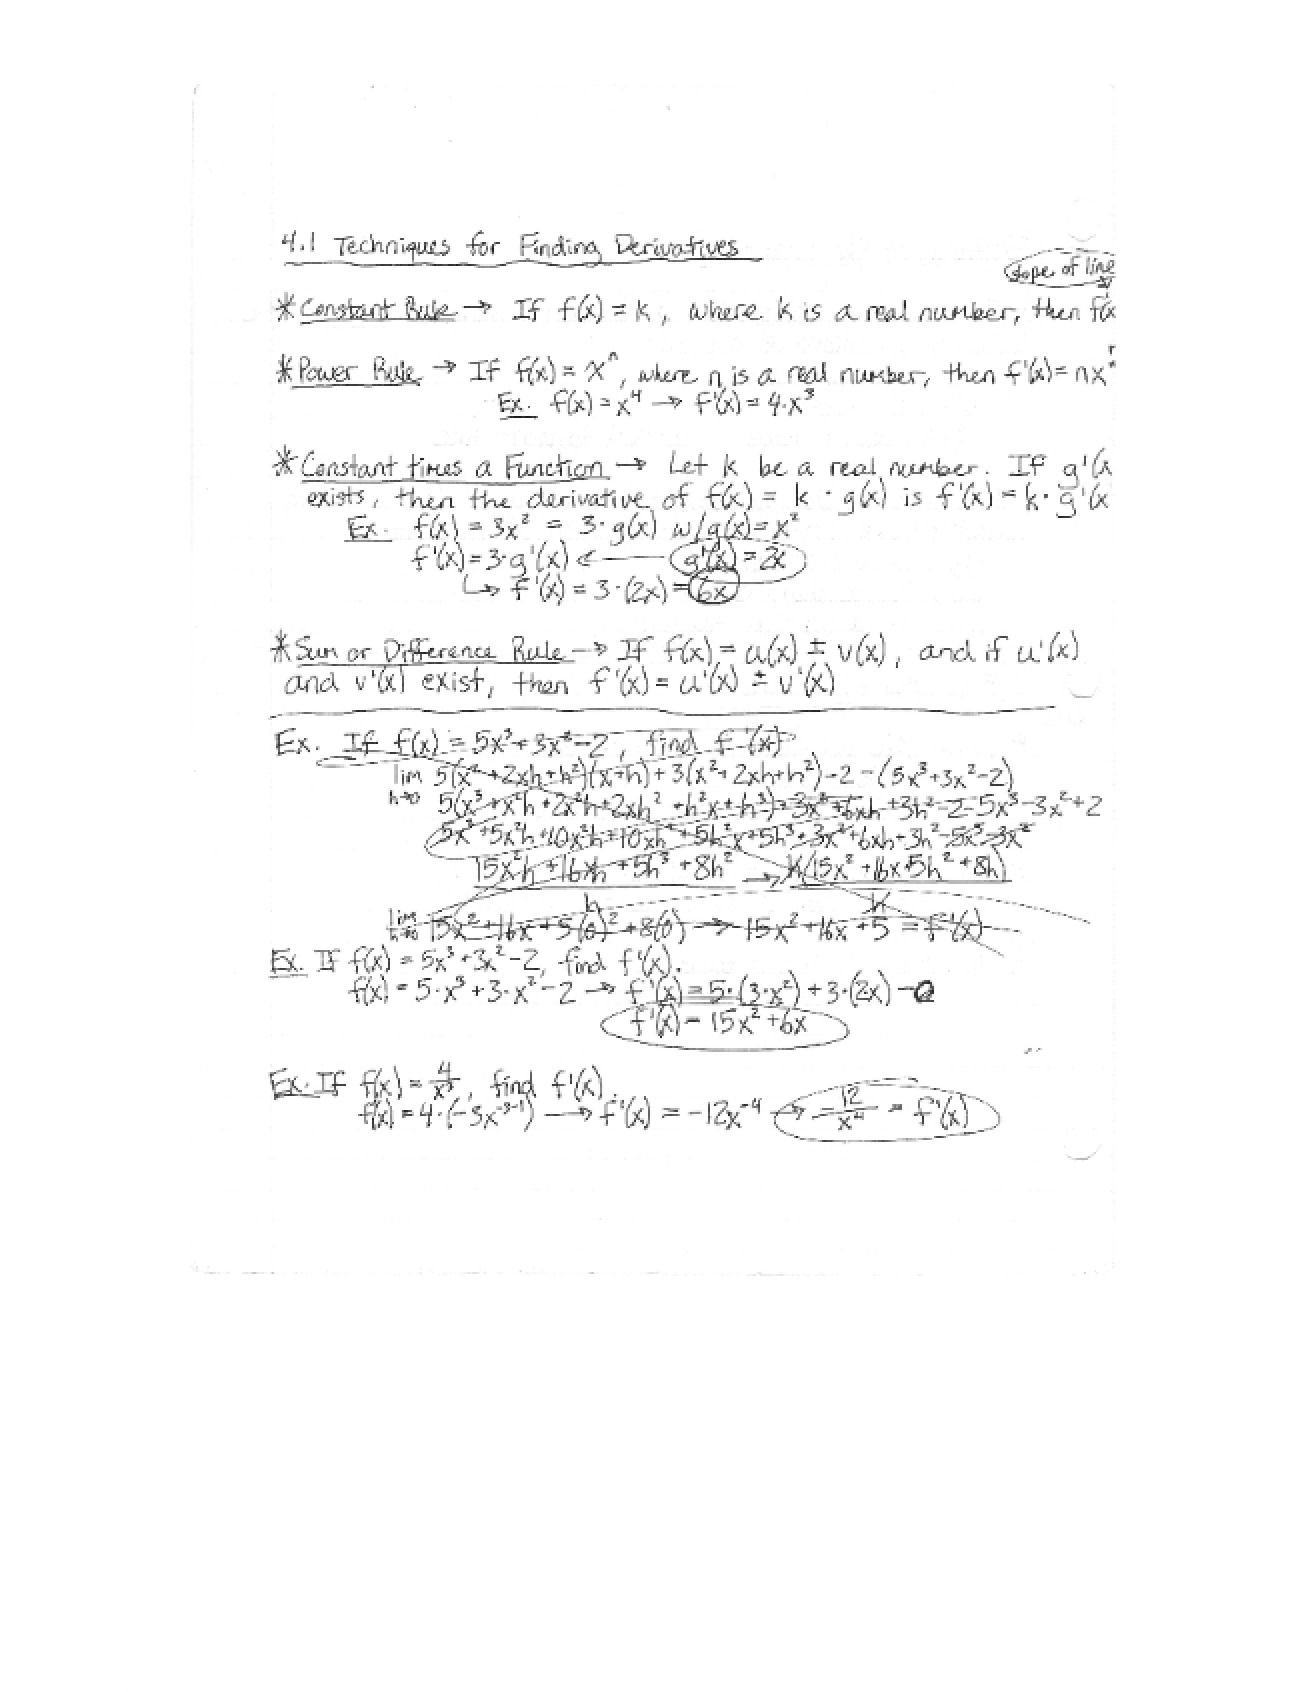 4.1 Techniques for Finding Derivatives
slope of line
*Constant Rule → If f(x) = k, where k is a real number, then f'(x
*Power Rule → If f(x) = xⁿ, where n is a real number, then f'(x) = nx
Ex. f(x) = x⁴ → f'(x) = 4·x³
*Constant times a Function → Let k be a real number. If g'(x
exists, then the derivative of f(x) = k · g(x) is f'(x) = k · g'(x
Ex. f(x) = 3x² = 3·g(x) w/g(x) = x²
f'(x) = 3·g'(x) ← g'(x) = 2x
↳ f'(x) = 3·(2x) = 6x
*Sum or Difference Rule → If f(x) = u(x) ± v(x), and if u'(x)
and v'(x) exist, then f'(x) = u'(x) ± v'(x)
Ex. If f(x) = 5x³+3x²-2, find f'(x)
lim h→0 5(x²+2xh+h²)(x+h) + 3(x²+2xh+h²) - 2 - (5x³+3x²-2)
5(x³+x²h+2x²h+2xh²+h²x+h³)+3x²+6xh+3h²-2-5x³-3x²+2
5x³+5x²h+10x²h+10xh²+5h²x+5h³+3x²+6xh+3h²-5x³-3x²
15x²h+16xh+5h³+8h² → h(15x²+16x+5h²+8h)
h h
lim h→0 15x²+16x+5(0)²+8(0) → 15x²+16x+5 = f'(x)
Ex. If f(x) = 5x³+3x²-2, find f'(x).
f(x) = 5·x³+3·x²-2 → f'(x) = 5·(3·x²)+3·(2x)-0
f'(x) = 15x²+6x
Ex. If f(x) = 4/x³, find f'(x).
f(x) = 4·(-3x⁻³⁻¹) → f'(x) = -12x⁻⁴ → -12/x⁴ = f'(x)